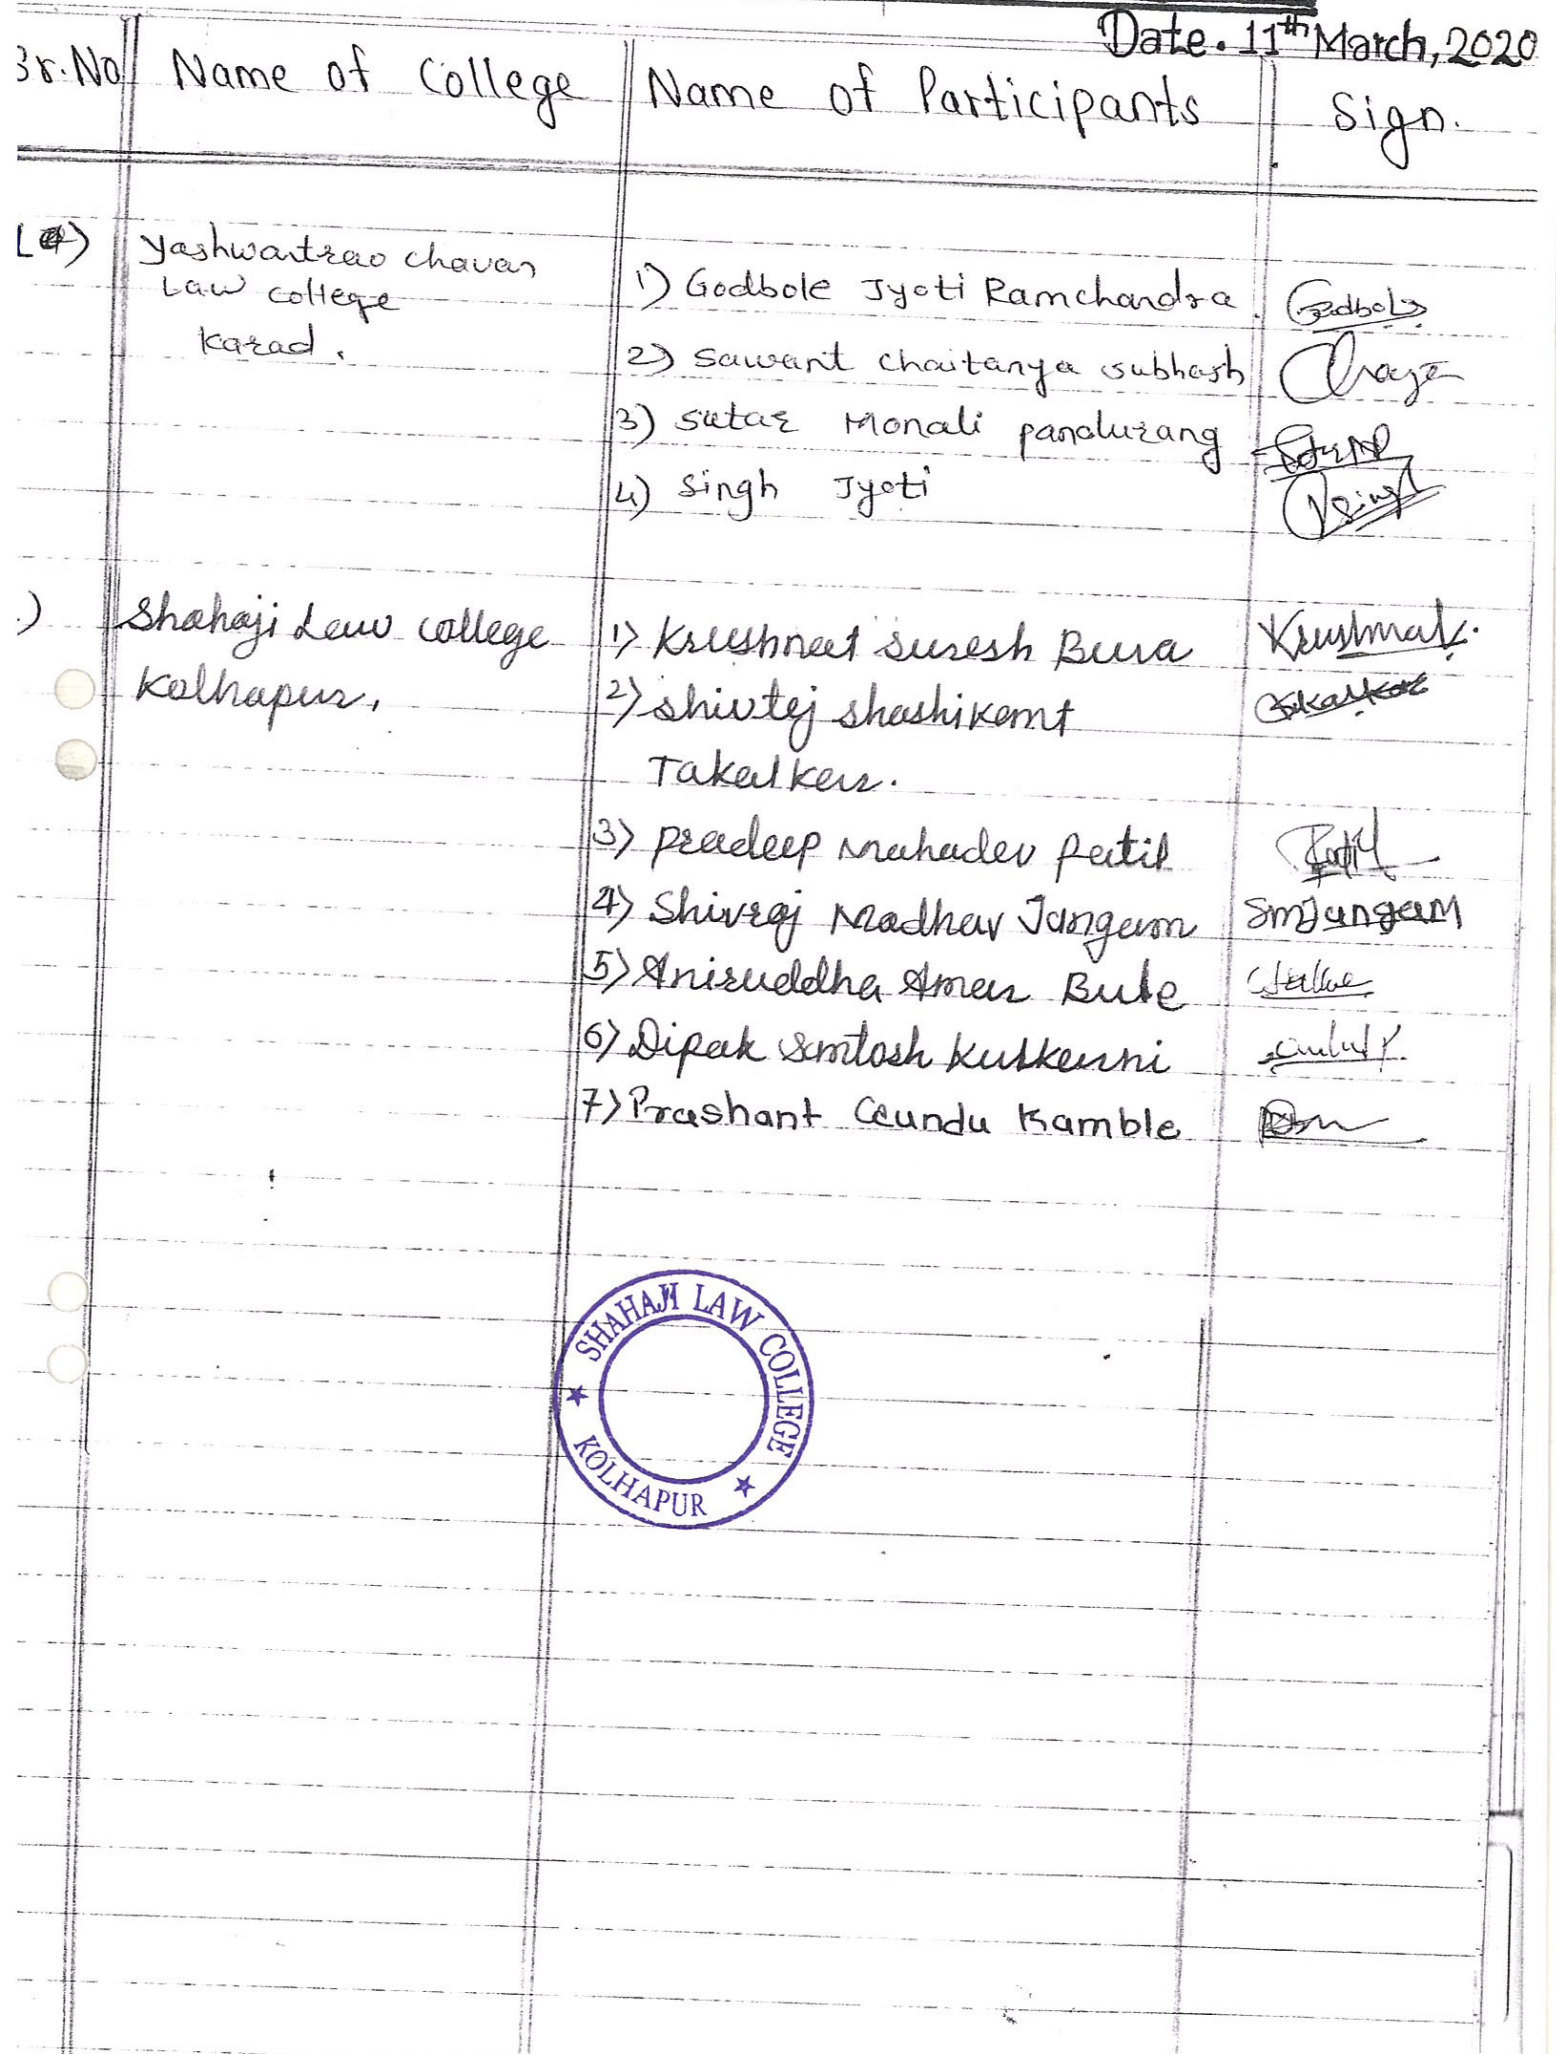 Date. 11th March, 2020
Sr.No Name of College Name of Participants Sign.
Yashwantrao chavan
Law college
Karad.
1) Godbole Jyoti Ramchandra Godbole
2) Sawant Chaitanya Subhash
3) Sutar Monali pandurang
4) Singh Jyoti Singh
Shahaji Law college
Kolhapur,
1) Krushnat Suresh Bura Krushnat.
2) Shivtej Shashikant
Takalkar.
3) Pradeep Mahadev Patil Patil
4) Shivraj Madhav Jangam SmJangam
5) Aniruddha Amar Bute
6) Dipak Santosh Kulkarni
7) Prashant Gundu Kamble
SHAHAJI LAW COLLEGE
KOLHAPUR